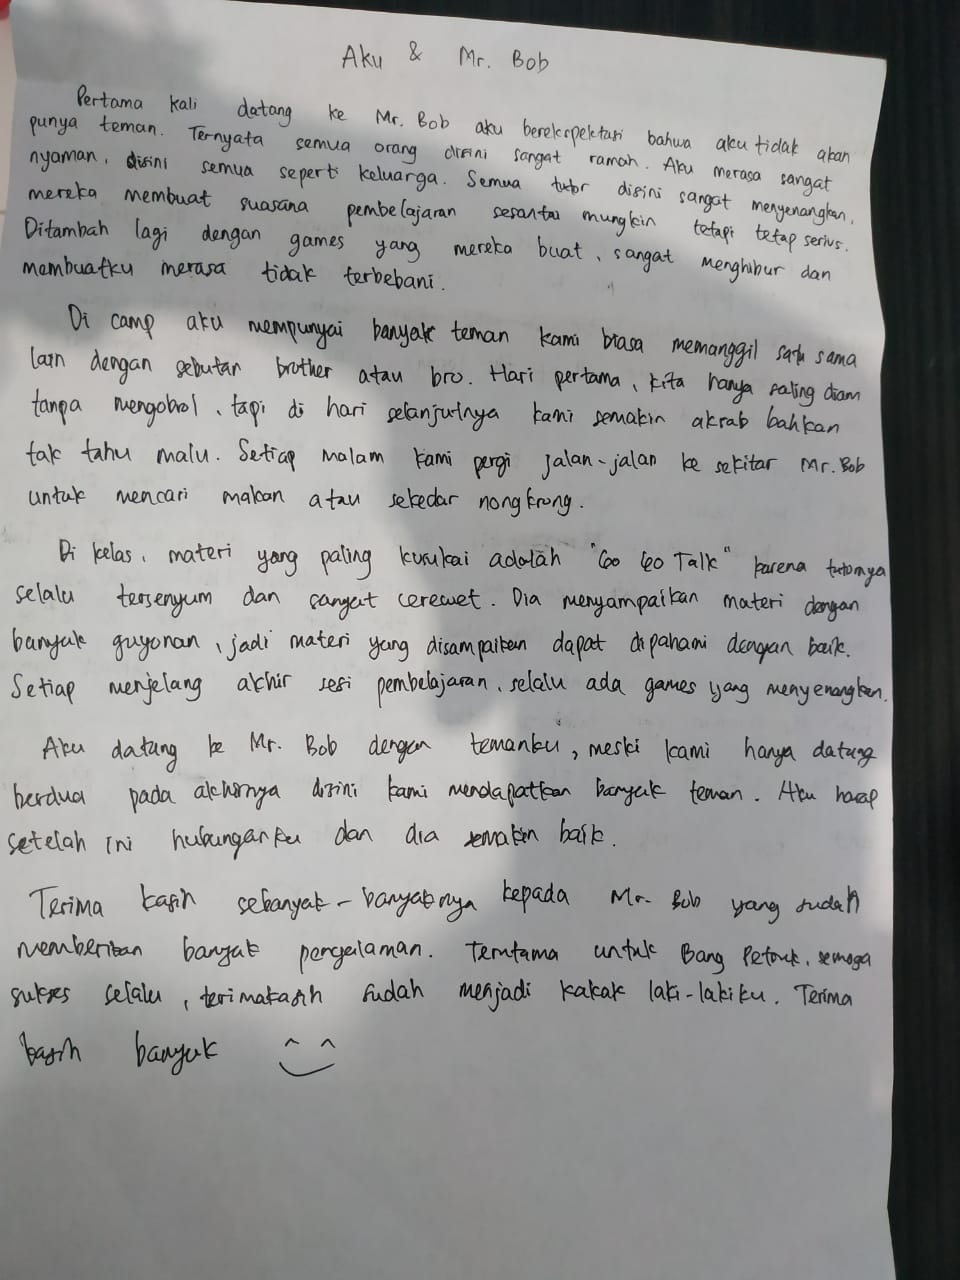 Aku & Mr. Bob
Pertama kali datang ke Mr. Bob aku berekspektasi bahwa aku tidak akan
punya teman. Ternyata semua orang disini sangat ramah. Aku merasa sangat
nyaman, disini semua seperti keluarga. Semua tutor disini sangat menyenangkan,
mereka membuat suasana pembelajaran sesantai mungkin tetapi tetap serius.
Ditambah lagi dengan games yang mereka buat, sangat menghibur dan
membuatku merasa tidak terbebani.
Di camp aku mempunyai banyak teman kami biasa memanggil satu sama
lain dengan sebutan brother atau bro. Hari pertama, kita hanya saling diam
tanpa mengobrol, tapi di hari selanjutnya kami semakin akrab bahkan
tak tahu malu. Setiap malam kami pergi jalan-jalan ke sekitar Mr. Bob
untuk mencari makan atau sekedar nongkrong.
Di kelas, materi yang paling kusukai adalah "Go Go Talk" karena tutornya
selalu tersenyum dan sangat cerewet. Dia menyampaikan materi dengan
banyak guyonan, jadi materi yang disampaikan dapat dipahami dengan baik.
Setiap menjelang akhir sesi pembelajaran, selalu ada games yang menyenangkan.
Aku datang ke Mr. Bob dengan temanku, meski kami hanya datang
berdua pada akhirnya disini kami mendapatkan banyak teman. Aku harap
setelah ini hubunganku dan dia semakin baik.
Terima kasih sebanyak-banyaknya kepada Mr. Bob yang sudah
memberikan banyak pengalaman. Terutama untuk Bang semoga
sukses selalu, terimakasih sudah menjadi kakak laki-lakiku. Terima
kasih banyak